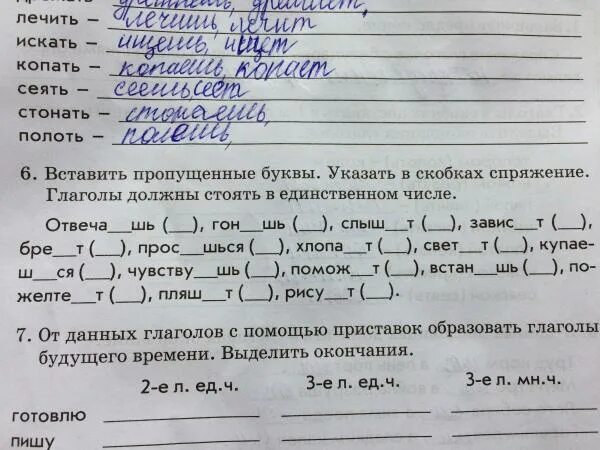 лечить – лечишь, лечит
искать – ищешь, ищет
копать – копаешь, копает
сеять – сеешь, сеет
стонать – стонаешь,
полоть – полешь,
6. Вставить пропущенные буквы. Указать в скобках спряжение.
Глаголы должны стоять в единственном числе.
Отвеча__шь (__), гон__шь (__), слыш__т (__), завис__т (__),
бре__т (__), прос__шься (__), хлопа__т (__), свет__т (__), купае-
ш__ся (__), чувству__шь (__), помож__т (__), встан__шь (__), по-
желте__т (__), пляш__т (__), рису__т (__).
7. От данных глаголов с помощью приставок образовать глаголы
будущего времени. Выделить окончания.
2-е л. ед.ч. 3-е л. ед.ч. 3-е л. мн.ч.
готовлю
пишу